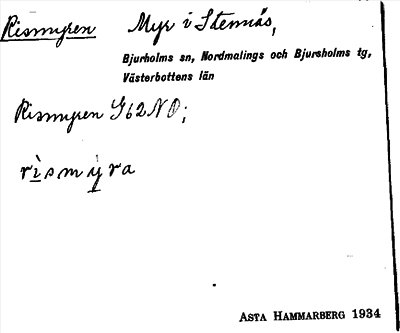 Rismyren Myr i Stennäs,
Bjurholms sn, Nordmalings och Bjursholms tg,
Västerbottens län
Rismyren G62NO;
rìsmy̱ra
ASTA HAMMARBERG 1934